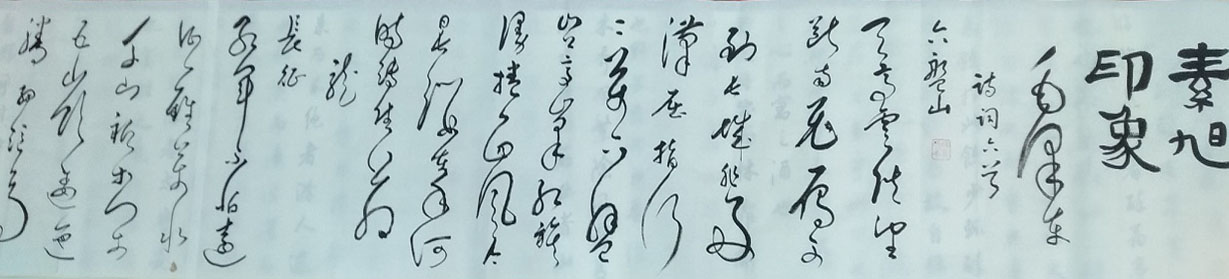 素旭
印象
毛泽东
诗词六首
六盘山
天高云淡望
断南飞雁不
到长城非好
漢屈指行
二万六盘
山上高峰红旗
漫捲西风今
日长缨在手何
时缚住苍
龙
長征
红军不怕远
征难万水
千山只等闲
五岭逶迤
腾细浪乌